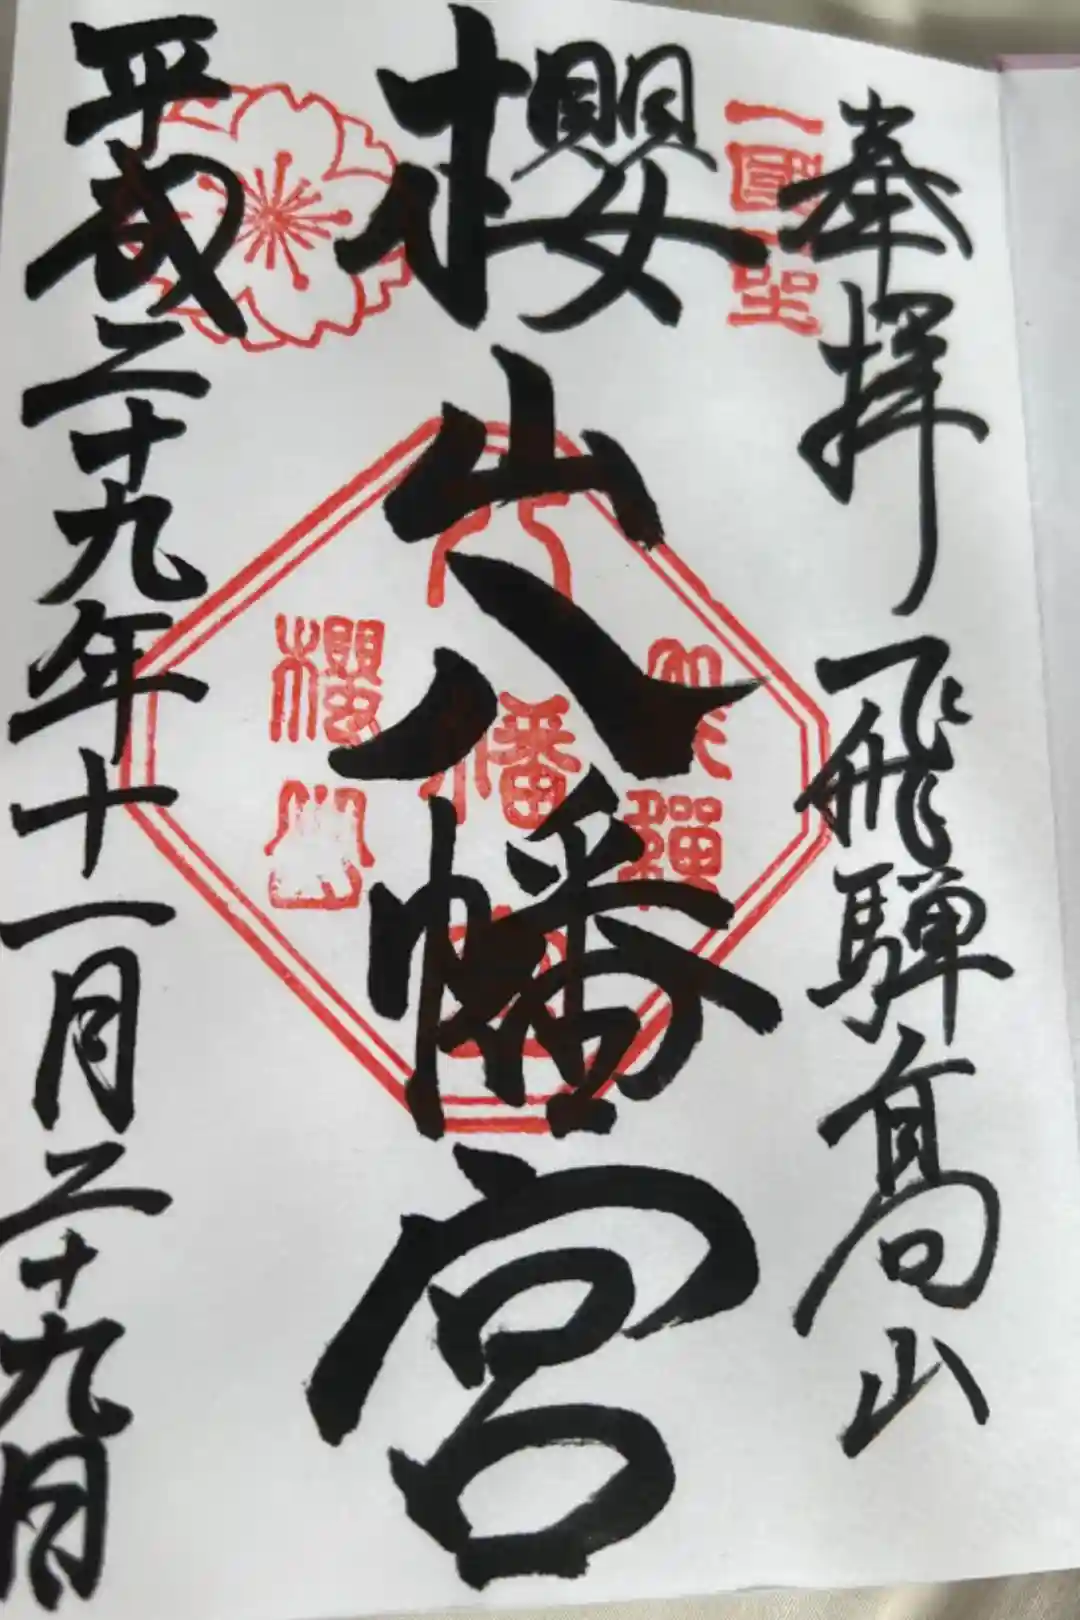 奉拝 飛騨髙山
一國一社
櫻山八幡宮
飛驒
八幡宮
櫻山
平成二十九年十一月二十九日